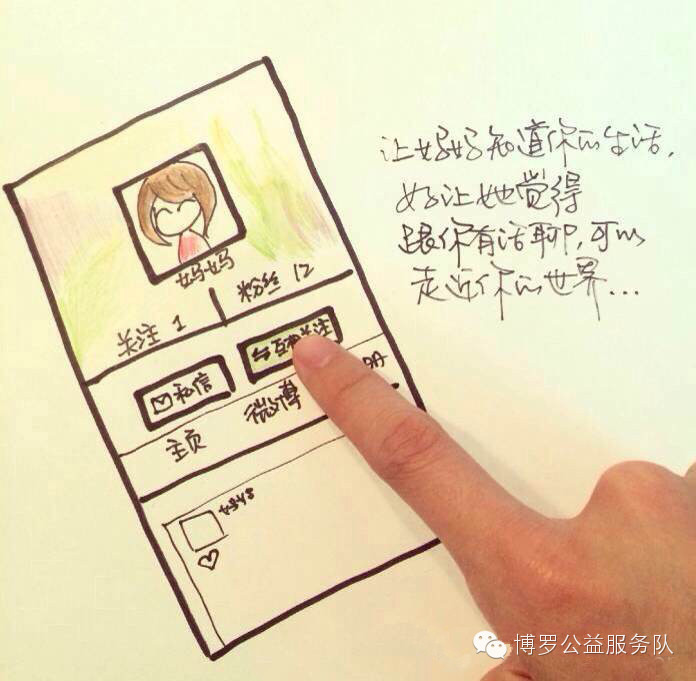 让妈妈知道你的生活,
好让她觉得
跟你有话聊,可以
走近你的世界...
妈妈
关注 1
粉丝 12
互相关注
私信
主页
微博
博罗公益服务队